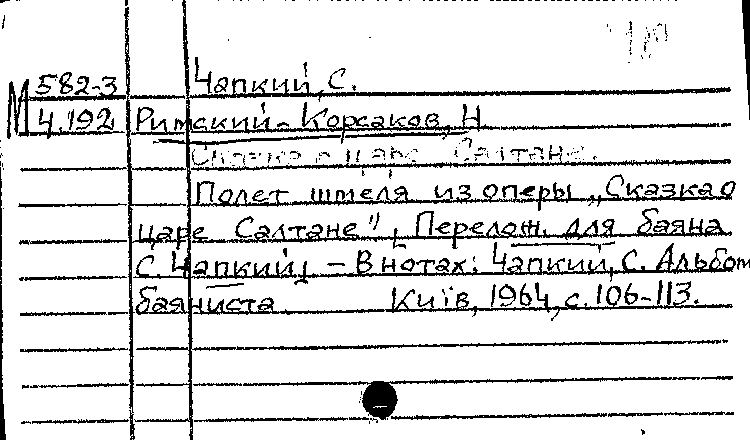 582-3 Чапкий, С.
М 4.192 Римский-Корсаков, Н
Сказка о царе Салтане.
Полет шмеля из оперы „Сказка о
царе Салтане", [Перелож. для баяна
С. Чапкий] – В нотах: Чапкий, С. Альбом
баяниста. Київ, 1964, с. 106-113.